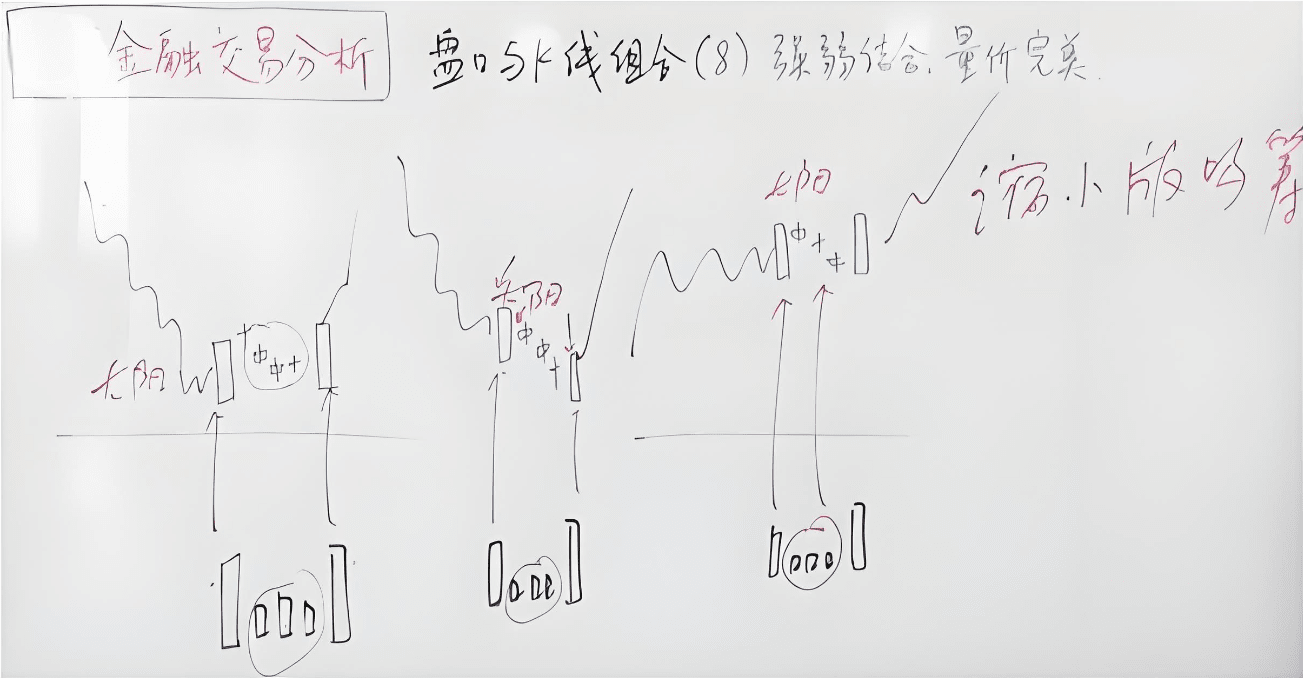 金融交易分析
盘口与K线组合(8) 强弱结合.量价完美.
缩小版吸筹
大阳
大阳
大阳